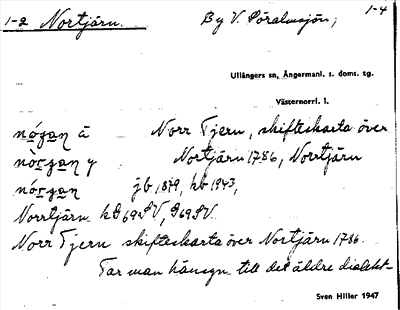 1-2 Nortjärn. By V. Söralmsjön; 1-4
Ullångers sn, Ångermanl. s. doms. tg.
Västernorrl. l.
nǻgan å Norr Tjern, skifteskarta över
nòrgan y Nortjärn 1786, Norrtjärn
nórgan jb 1879, kb 1943,
Norrtjärn kD 69 SV, D 69 SV.
Norr Tjern skifteskarta över Nortjärn 1786.
Tar man hänsyn till det äldre dialekt-
Sven Hiller 1947